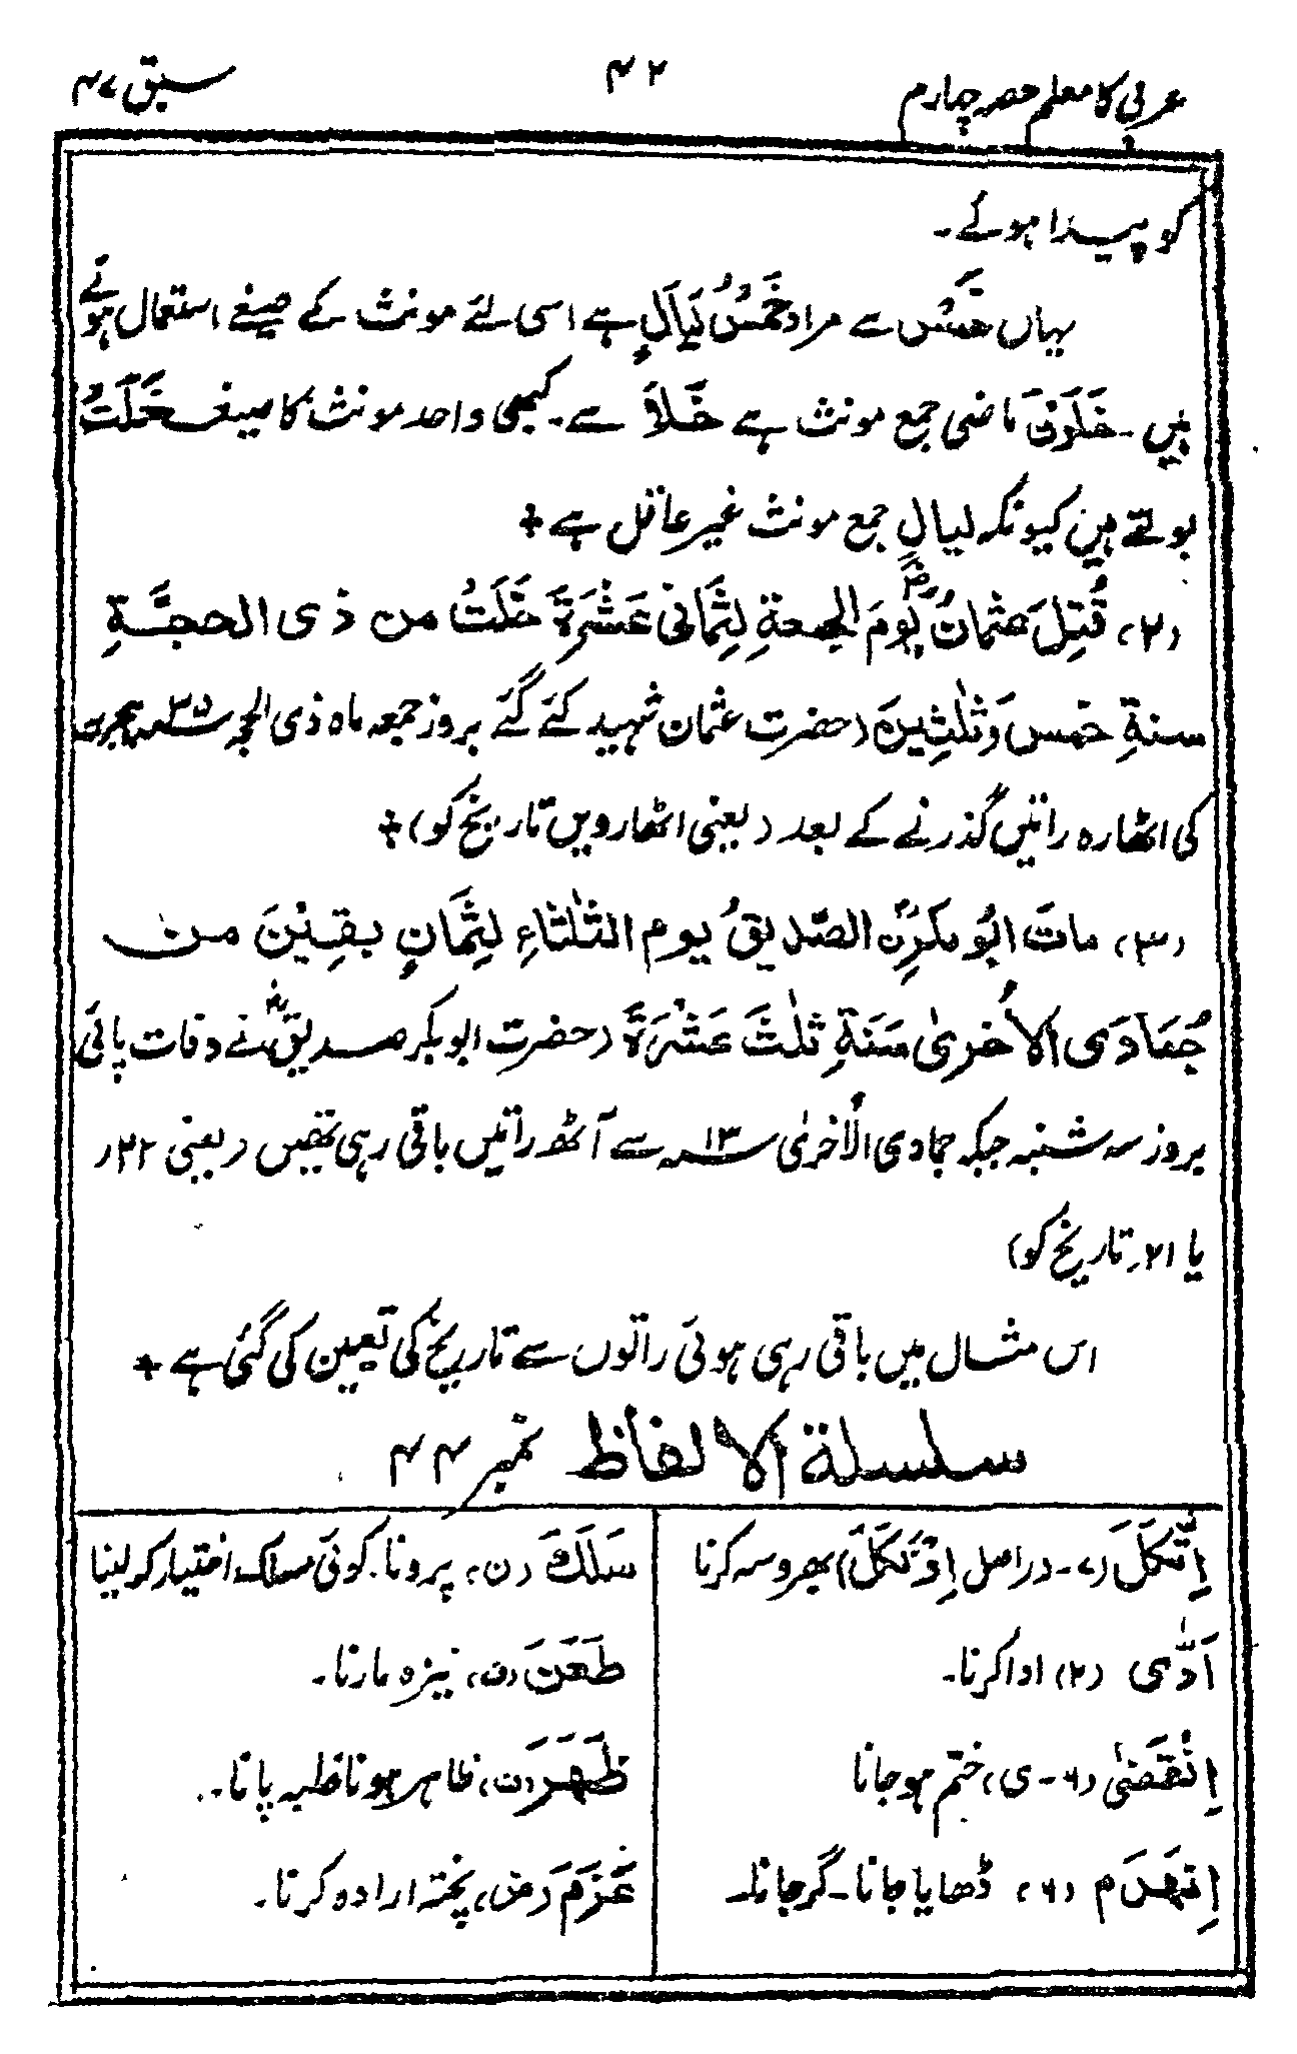 عربی کا معلم حصہ چہارم ۴۲ سبق ۴۷
کو پیدا ہوئے۔
یہاں خَمْسٌ سے مراد خَمْسُ لَیَالٍ ہے اسی لئے مونث کے صیغے استعمال ہوئے
ہیں۔ خَلَوْنَ ماضی جمع مونث ہے خَلَا سے۔ کبھی واحد مونث کا صیغہ خَلَتْ
بولتے ہیں کیونکہ لیالٍ جمع مونث غیر عاقل ہے +
(۲) قُتِلَ عثمانُ رض یومَ الجمعةِ لِثَمَانِی عَشْرَةَ خَلَتْ من ذی الحجَّةِ
سنةِ خمس وَثلٰثِینَ (حضرت عثمان شہید کئے گئے بروز جمعہ ماہ ذی الحجہ ۳۵ سنہ ہجری
کی اٹھارہ راتیں گذرنے کے بعد (یعنی اٹھارویں تاریخ کو) +
(۳) ماتَ ابُو بکرِنِ الصّدیقُ یوم الثلٰثاءِ لِثَمَانٍ بقِیْنَ من
جُمَادَی الاُخریٰ سَنَةِ ثلٰثَ عَشْرَةَ (حضرت ابوبکر صدیقؓ نے وفات پائی
بروز سہ شنبہ جبکہ جمادی الاُخریٰ ۱۳ سنہ سے آٹھ راتیں باقی رہی تھیں (یعنی ۲۲ر
یا ۲۱ر تاریخ کو)
اس مثال میں باقی رہی ہوئی راتوں سے تاریخ کی تعیین کی گئی ہے +
سلسلة الالفاظ نمبر ۴۴
اِتَّکَلَ (۷۔ دراصل اِوْتَکَلَ) بھروسہ کرنا
اَدّٰی (۲) ادا کرنا۔
اِنْقَضٰی (۶۔ ی) ختم ہوجانا
اِنْهَدَم (۶) ڈھایا جانا۔ گر جانا۔
سَلَكَ (ن) پرونا۔ کوئی مسلک اختیار کر لینا
طَعَنَ (ن) نیزہ مارنا۔
ظَهَرَ (ن) ظاہر ہونا غلبہ پانا۔
عَزَمَ (ض) پختہ ارادہ کرنا۔